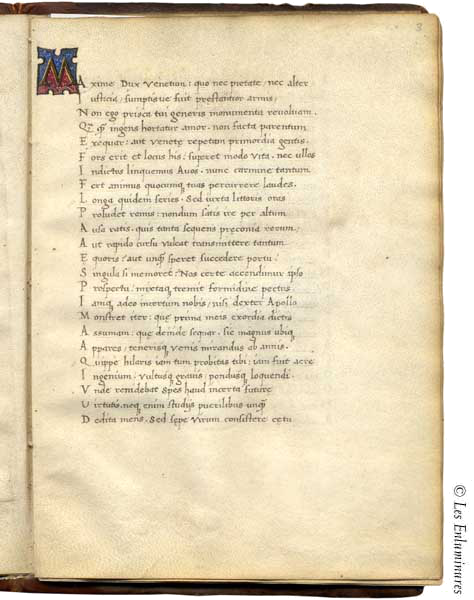 3
Maxime Dux Venetum: quo nec pietate, nec alter
Iusticia, sumptisve fuit prestantior armis,
Non ego prisca tui generis monumenta revolvam.
Qq͛ ingens hortatur amor, non facta parentum
Exequar: aut venete repetam primordia gentis.
Fors erit et locus his: superet modo vita, nec ullos
Indictos linquemus Avos, nunc carmine tantum.
Fert animus quocumq; tuas percurrere laudes.
Longa quidem series, Sed iuxta littoris oras
Proludet remus: nondum satis ire per altum
Ausa ratis, quis tanta sequens preconia rerum,
Aut rapido cursu valeat transmittere tantum
Equoris: aut unq̃ speret succedere portu:
Singula si memoret: Nos certe accendimur ipso
Prospectu, mixtaq; tremit formidine pectus
Iamq; adeo incertum nobis, nisi dexter Apollo
Monstret iter: que prima meis exordia dictis
Assumam: que deinde sequar, sic magnus ubiq;
Appares, tenerisq; venis mirandus ab annis.
Quippe hilaris iam tum probitas tibi, iam fuit acre
Ingenium, vultusq; gravis, pondusq; loquendi.
Unde renidebat spes haud incerta future
Virtutis, neq; enim studijs puerilibus unq̃
Dedita mens, Sed sepe virum consistere cetu
© Les Enluminures